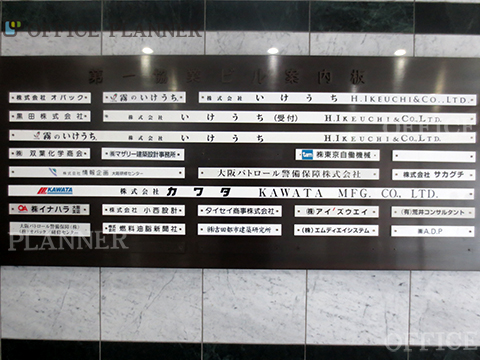 OFFICE PLANNER
第一共英ビル案内板
株式会社 オパック 霧のいけうち 株式会社 いけうち H.IKEUCHI&CO.,LTD.
黒田株式会社 株式会社 いけうち (受付) H.IKEUCHI&CO.,LTD.
霧のいけうち 株式会社 いけうち H.IKEUCHI&CO.,LTD.
㈱ 双葉化学商会 ㈱マザリー建築設計事務所 ㈱東京自働機械
株式会社 情報企画 大阪研修センター 大阪パトロール警備保障株式会社 株式会社 サカグチ
KAWATA 株式会社 カワタ KAWATA MFG. CO., LTD.
㈱イナハラ 株式会社 小西設計 タイセイ商事株式会社 ㈱アイ・スウエイ (有)荒井コンサルタント
大阪パトロール警備保障(株) 燃料油脂新聞社 ㈲吉田都市建築研究所 (株)エムディエイシステム ㈱A.D.P
(株)オパック 研修センター
PLANNER
OFFICE